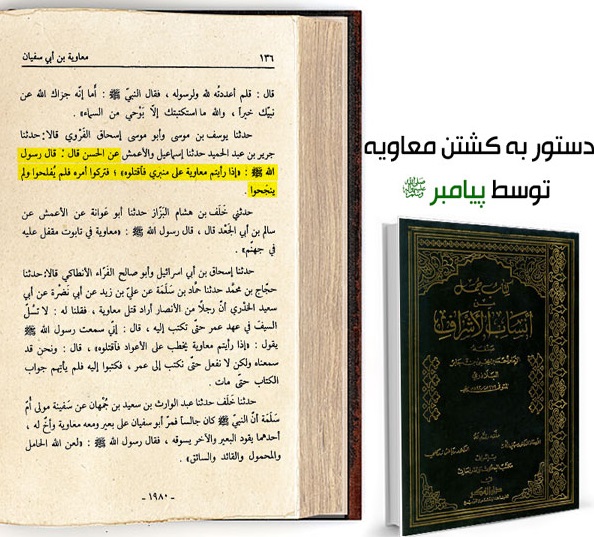 ١٣٦ معاوية بن أبي سفيان
قال : قلم أعددتُه لله ولرسوله ، فقال النبيّ ﷺ : أَما إنّه جزاك الله عن
نبيّك خيراً ، والله ما استكتبتك إلّا بَوْحي من السماء» .
حدثنا يوسف بن موسى وأبو موسى إسحاق الفَرْوي قالا : حدثنا
جرير بن عبد الحميد حدثنا إسماعيل والأعمش عن الحسن قال : قال رسول
الله ﷺ : «إذا رأيتم معاوية على منبري فاقتلوه» ؛ فتركوا أمره فلم يُفلحوا ولم
ينجحوا .
حدثني خَلَف بن هشام البزّاز حدثنا أبو عَوانة عن الأعمش عن
سالم بن أبي الجَعْد قال ، قال رسول الله ﷺ : «معاوية في تابوت مقفل عليه
في جهنّم» .
حدثنا إسحاق بن أبي اسرائيل وأبو صالح الفرّاء الأنطاكي قالا : حدثنا
حجّاج بن محمّد حدثنا حمّاد بن سَلَمَة عن عليّ بن زيد عن أبي نَضْرة عن أبي
سعيد الخُدْري أنّ رجلاً من الأنصار أراد قتل معاوية ، فقلنا له : لا تسُلّ
السيفَ في عهد عمر حتى تكتب إليه ، قال : إنّي سمعت رسول الله ﷺ
يقول : «إذا رأيتم معاوية يخطب على الأعواد فاقتلوه» ، قال : ونحن قد
سمعناه ولكن لا نفعل حتّى نكتب إلى عمر ، فكتبوا إليه فلم يأتهم جواب
الكتاب حتّى مات .
حدثنا خَلَف حدثنا عبد الوارث بن سعيد بن جُمْهان عن سَفينة مولى أمّ
سَلَمَة أنّ النبيّ ﷺ كان جالساً فمرّ أبو سفيان على بعير ومعه معاوية وأخٌ له ،
أحدهما يقود البعير والآخر يسوقه ، فقال رسول الله ﷺ : «لعن الله الحامل
والمحمول والقائد والسائق» .
- ١٩٨٠ -
دستور به کشتن معاویه
توسط پیامبر ﷺ
كتاب جمل
من
أنساب الأشراف